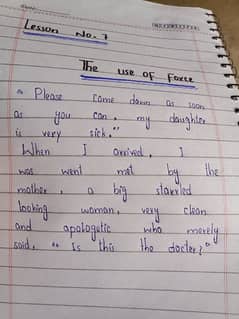 Lesson No. 7
The use of Force
" Please come down as soon
as you can, my daughter
is very sick."
When I arrived, I
was went met by the
mother, a big starrled
looking woman, very clean
and apologetic who merely
said, " Is this the docter?"